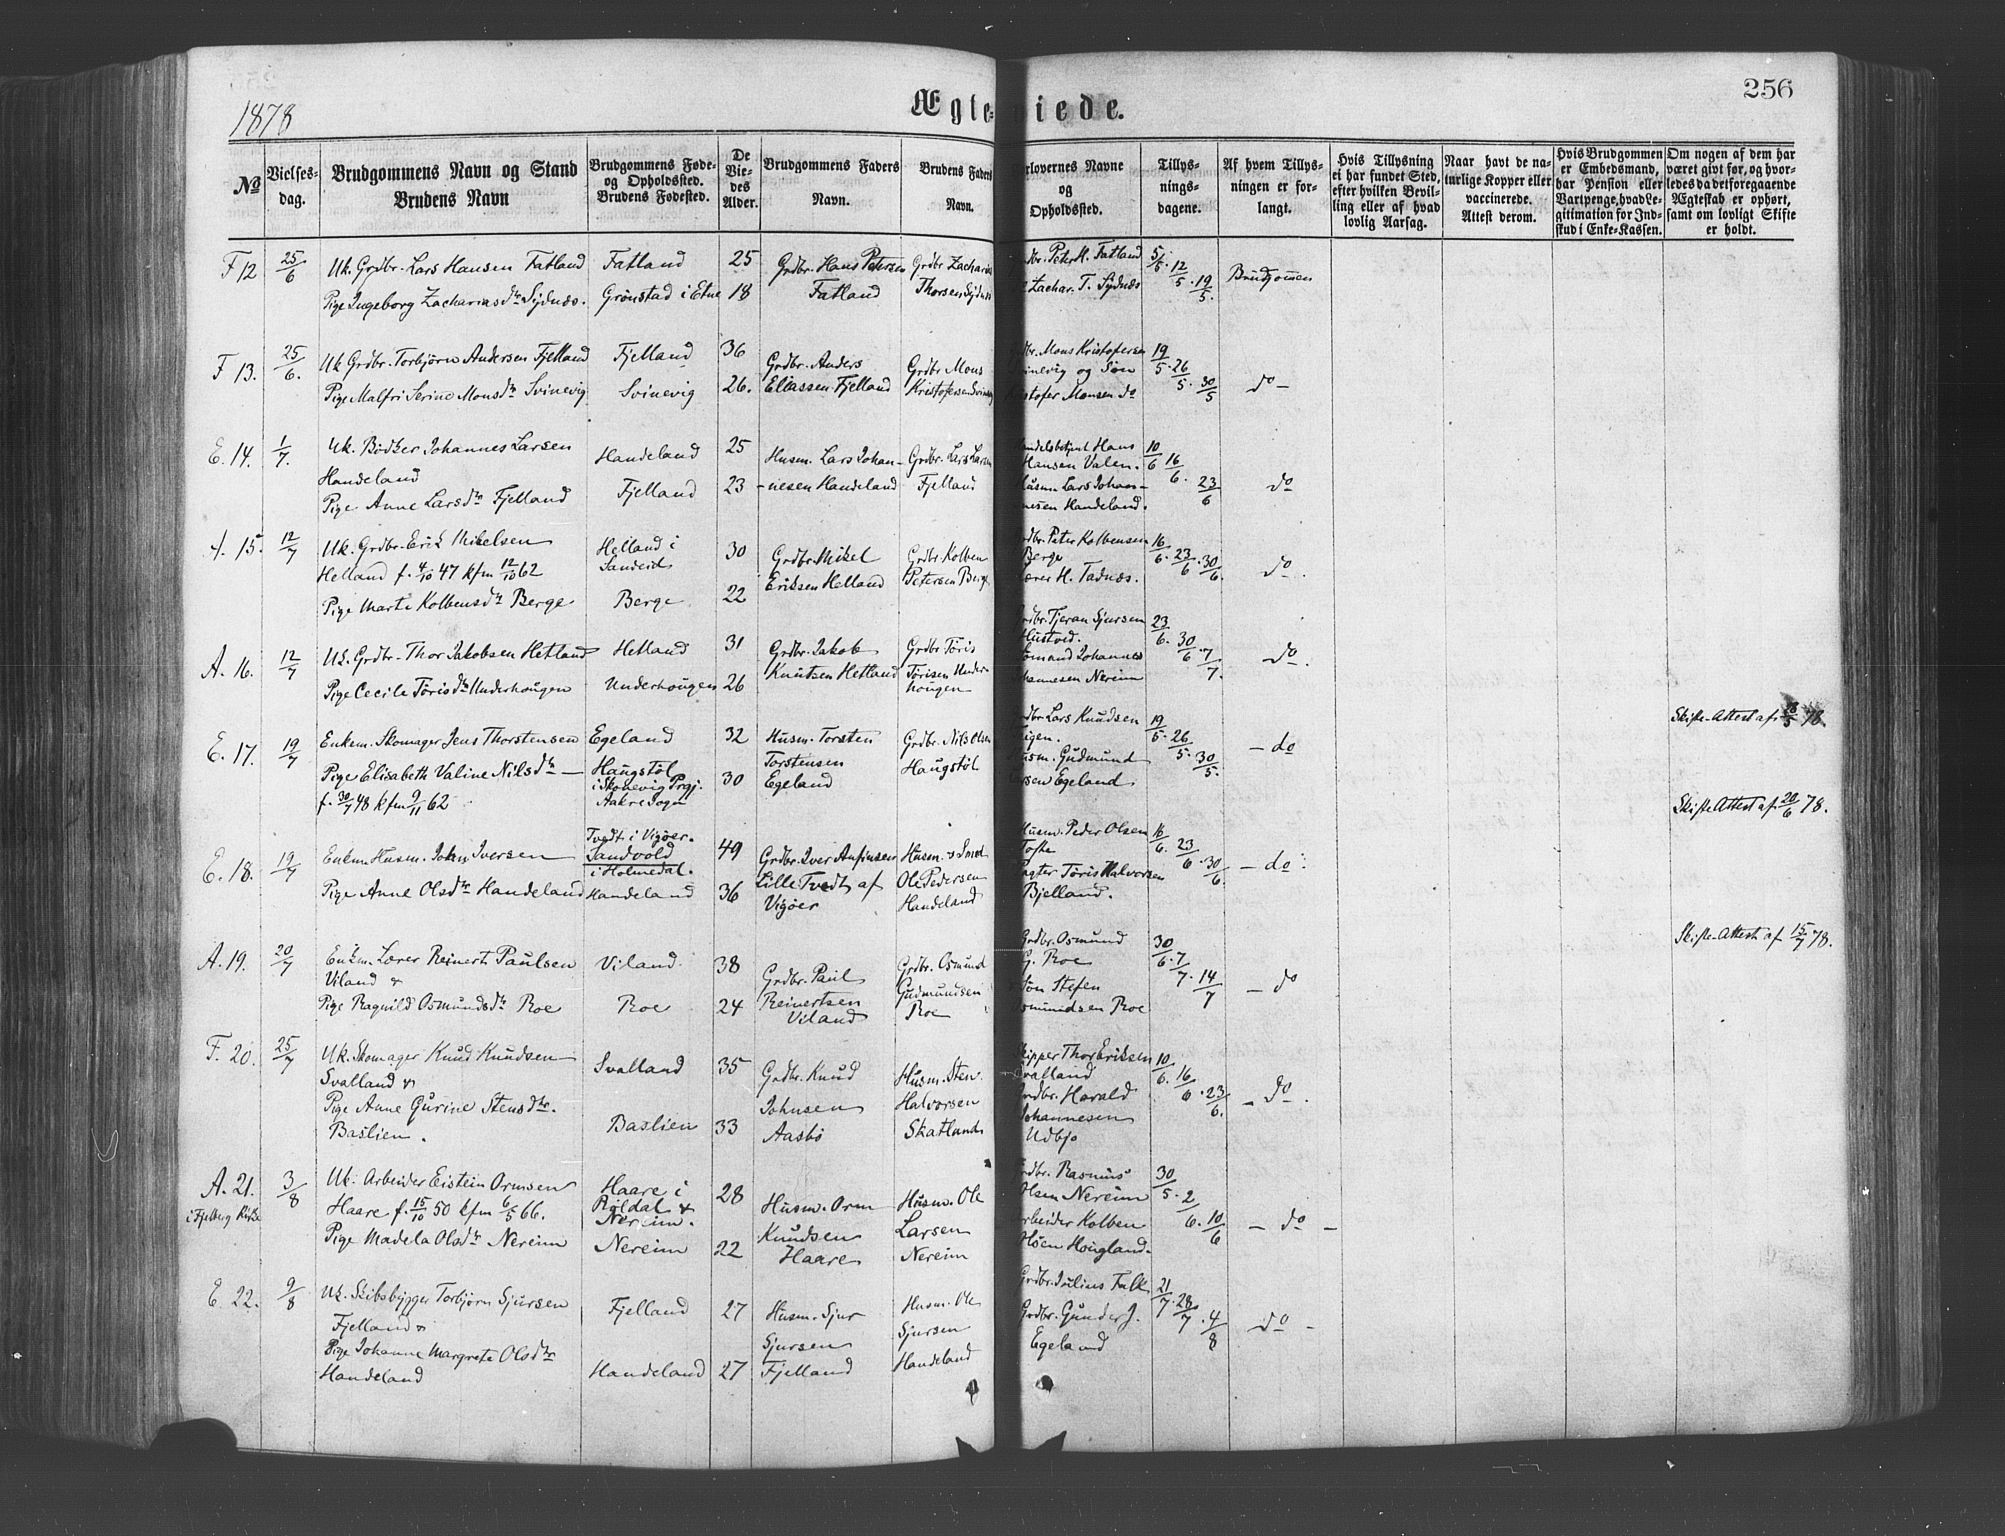 1878
Ægteviede.
256
No
Vielses-
dag.
Brudgommens Navn og Stand
Brudens Navn
Brudgommens Føde-
og Opholdssted.
Brudens Fødested.
De
Vie-
des
Alder.
Brudgommens Faders
Navn.
Brudens Faders
Navn.
orlovernes Navne
og
Opholdssted.
Tillys-
nings-
dagene.
Af hvem Tillys-
ningen er for-
langt.
Hvis Tillysning
ei har fundet Sted,
efter hvilken Bevil-
ling eller af hvad
lovlig Aarsag.
Naar havt de na-
turlige Kopper eller
vaccinerede.
Attest derom.
Hvis Brudgommen
er Embedsmand,
har Pension eller
Vartpenge, hvad Le-
gitimation for Ind-
skud i Enke-Kassen.
Om nogen af dem har
været givt før, og hvor-
ledes da det foregaaende
Ægteskab er ophørt,
samt om lovligt Skifte
er holdt.
F 12 25/6
Uk. Grdbr. Lars Hansen Fatland
Pige Ingeborg Zachariasdtr Sydnæs.
Fatland
Grönstad i Etne
25
18
Grdbr. Hans Petersen
Fatland
Grdbr Zacharias
Thorsen Sydnæs
dbr. Peter H. Fatland
Zachar. T. Sydnæs
5/5. 12/5. 19/5.
Brudgomen
F 13. 25/6.
Uk Grdbr. Torbjörn Andersen Fjelland
Pige Malfri Serine Monsdtr Svinevig
Fjelland
Svinevig
36
26.
Grdbr. Anders
Eliassen Fjelland
Grdbr Mons
Kristofersen Svinevig
dbr. Mons Kristofersen
Svinevig og Søn
Kristofer Monsen do
19/5. 26/5. 30/5
do –
E. 14. 1/7.
Uk. Bödker Johannes Larsen
Handeland
Pige Anne Larsdtr Fjelland
Handeland
Fjelland
25
23
Husm. Lars Johan-
-nesen Handeland
Grdbr. Lars Larsen
Fjelland
andelsbetjent Hans
Hansen Valen.
Husm. Lars Johan-
nesen Handeland.
10/6 16/6. 23/6
do
A. 15. 12/7
Uk. Grdbr. Erik Mikelsen
Helland f. 4/10 47 kfm 12/10 62
Pige Marte Kolbensdtr Berge
Helland i
Sandeid
Berge
30
22
Grdbr. Mikel
Eriksen Helland
Grdbr. Kolben
Petersen Berge
dbr. Peter Kolbensen
Berge
Lærer H. Tadnæs.
16/6. 23/6. 30/6.
do.
A. 16. 12/7
Uk. Grdbr. Thor Jakobsen Hetland
Pige Cecile Törisdtr Underhougen
Hetland
Underhougen
31
26
Grdbr. Jakob
Knutsen Hetland
Grdbr Töris
Törisen Under-
hougen
dbr. Tjeran Sjursen
Hustved.
Sömand Johannes
Johannesen Nereim
23/6. 30/6 7/7.
do.
E. 17. 19/7
Enkem. Skomager Jens Thorstensen
Pige Elisabeth Valine Nilsdtr –
f. 30/7 48 kfm 9/11 62
Egeland
Haugstöl
i Skonevig Prgj.
Aakre Sogn
32
30
Husm. Torsten
Torstensen
Egeland
Grdbr. Nils Olsen
Haugstöl
dbr Lars Knudsen
igen.
Husm. Gudmund
arsen Egeland.
19/5. 26/5. 30/5.
– do
Skifte-Attest af 78.
E. 18. 19/7
Enkem. Husm. John Iversen
Pige Anne Olsdtr Handeland
Tvedt i Vigöer.
Sandvold
i Holmedal.
Handeland
49
36
Grdbr. Iver Anfinsen
Lille Tvedt af
Vigöer
Husm. & Smed
Ole Pedersen
Handeland
Husm. Peder Olsen
Tofte
Pagter Töris Halvorsen
Bjelland.
16/6. 23/6. 30/6.
– do.
Skifte Attest af 20/6 78.
A. 19. 20/7
Enkm. Lærer Reinert Paulsen
Viland &
Pige Ragnild Osmundsdtr Roe
Viland
Roe
38
24
Grdbr. Paul
Reinertsen
Viland
Grdbr. Osmund
Gudmundsen
Roe
Grdbr. Osmund
G. Roe
& Søn Stefen
Osmundsen Roe
30/6. 7/7. 14/7
– do
Skifte-Attest af 15/7 78.
F. 20. 25/7
Uk. Skomager Knud Knudsen
Svalland &
Pige Anne Gurine Stensdtr.
Baslien.
Svalland
Baslien
35
33
Grdbr. Knud
Johnsen
Aasbö
Husm. Sten
Halvorsen
Skatland
Skipper Thor Eriksen
Svalland
Grdbr. Harald
Johannesen
Udbjo
10/6. 16/6. 23/6.
– do.
A. 21.
i Fjelberg Kirke
3/8
Uk. Arbeider Eistein Ormsen
Haare f. 15/10 50 kfm 6/5 66.
Pige Madela Olsdtr Nereim
Haare i
Röldal &
Nereim.
Nereim
28
22
Husm. Orm
Knudsen
Haare
Husm. Ole
Larsen
Nereim
rdbr. Rasmus
Olsen Nereim
Arbeider Kolben
Hougland.
30/5. 2/6. 10/6
– do –
E 22. 9/8
Uk. Skibsbygger Torbjörn Sjursen
Fjelland &
Pige Johanne Margrete Olsdtr
Handeland
Fjelland
Handeland
27
27
Husm. Sjur
Sjursen
Fjelland
Husm. Ole
Sjursen
Handeland
Grdbr. Julius Falk
Grdbr. Gunder J.
Egeland
21/7. 28/7. 4/8
do –